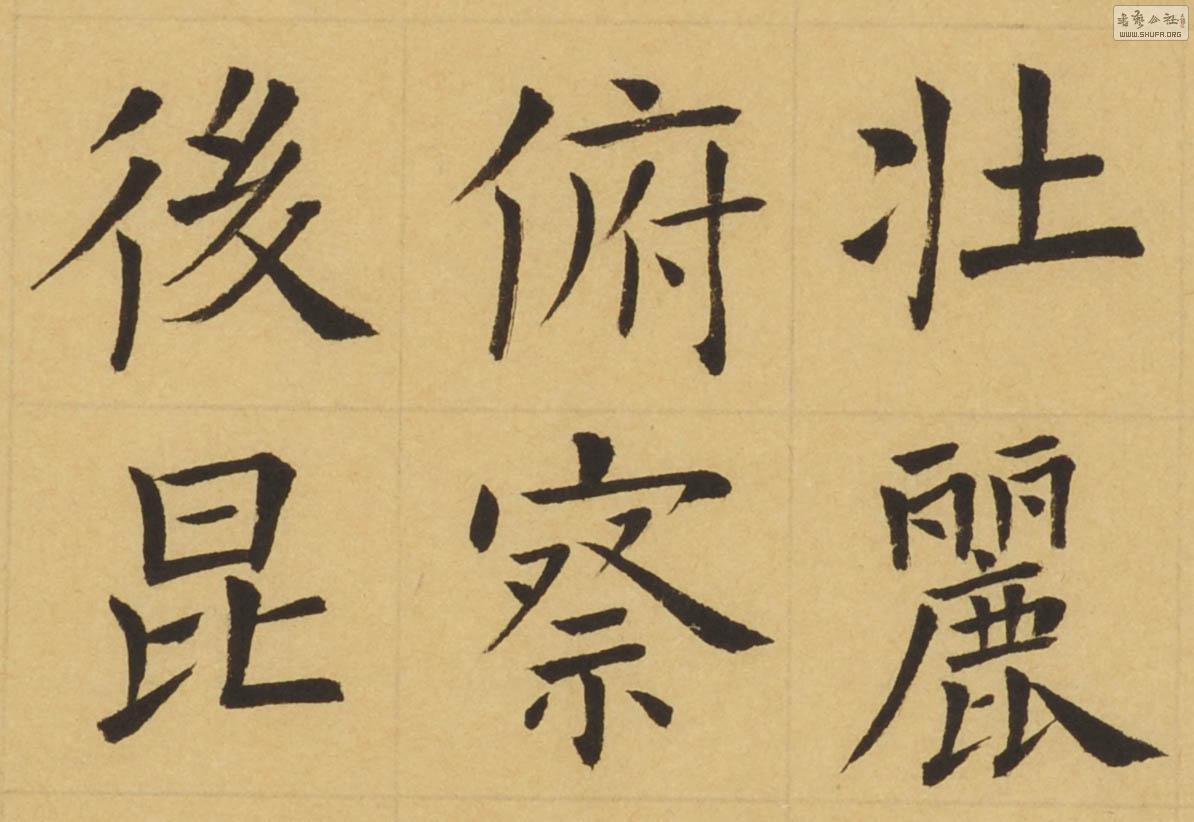 壯麗
俯察
後昆
書藝公社
WWW.SHUFA.ORG